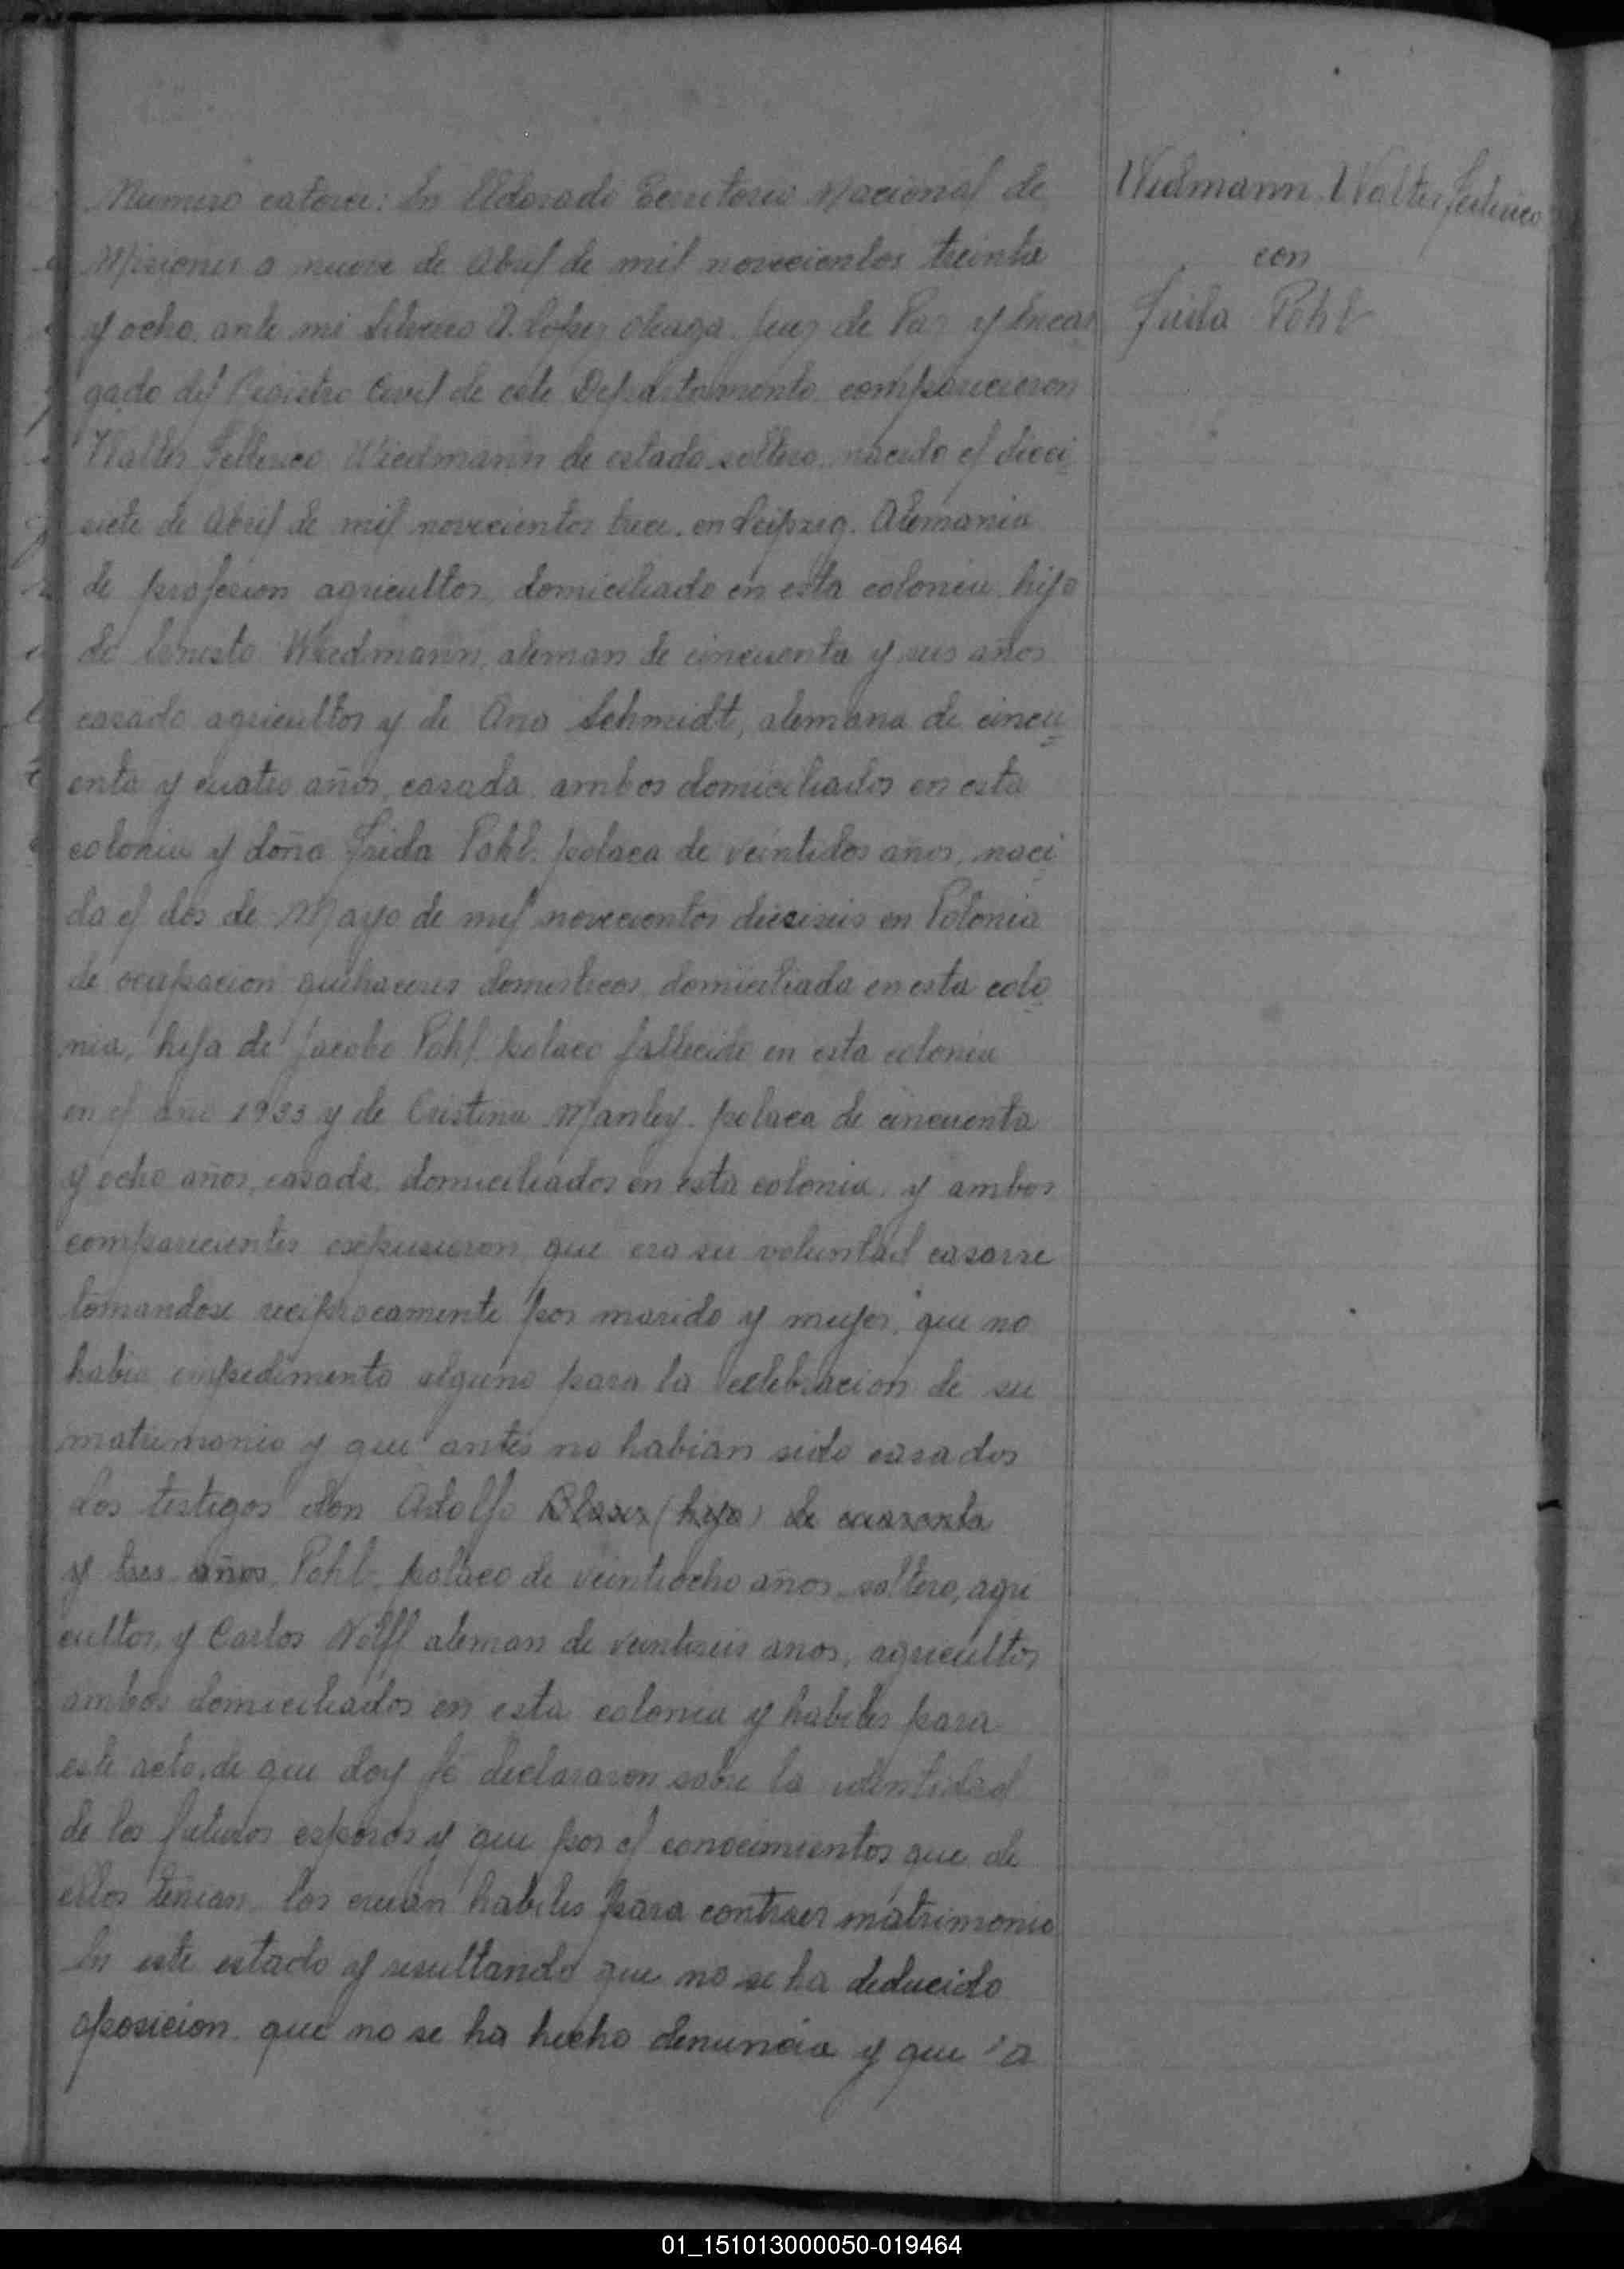 Numero catorce: En Eldorado Territorio Nacional de
Misiones a nueve de Abril de mil novecientos treinta
y ocho, ante mi A. Lopez Juez de Paz y Encar
gado del Registro Civil de este Departamento comparecieron
Walter Federico Wiedmann de estado soltero, nacido el dieci
siete de Abril de mil novecientos trece, en Leipzig, Alemania
de profesion agricultor, domiciliado en esta colonia hijo
de Ernesto Wiedmann, aleman de cincuenta y seis años
casado agricultor y de Ana Schmidt, alemana de cincu
enta y cuatro años, casada, ambos domiciliados en esta
colonia y doña Frida Pohl, polaca de veintidos años, naci
da el dos de Mayo de mil novecientos dieciseis en Polonia
de ocupacion quehaceres domesticos, domiciliada en esta colo
nia, hija de Jacobo Pohl polaco fallecido en esta colonia
en el año 1933 y de Cristina Manley, polaca de cincuenta
y ocho años, casada, domiciliados en esta colonia, y ambos
comparecientes expusieron que era su voluntad casarse
tomandose reciprocamente por marido y mujer, que no
habia impedimento alguno para la celebracion de su
matrimonio y que antes no habian sido casados
Los testigos don Adolfo (hijo) de cuarenta
y tres años, Pohl, polaco de veintiocho años, soltero, agri
cultor, y Carlos Wolff aleman de veintiseis anos, agricultor
ambos domiciliados en esta colonia y habiles para
este acto, de que doy fé declararon sobre la identidad
de los futuros esposos y que por el conocimientos que de
ellos tenian, los creian habiles para contraer matrimonio
En este estado y resultando que no se ha deducido
oposicion que no se ha hecho denuncia y que a
Wiedmann, Walter Federico
con
Frida Pohl
01_151013000050-019464